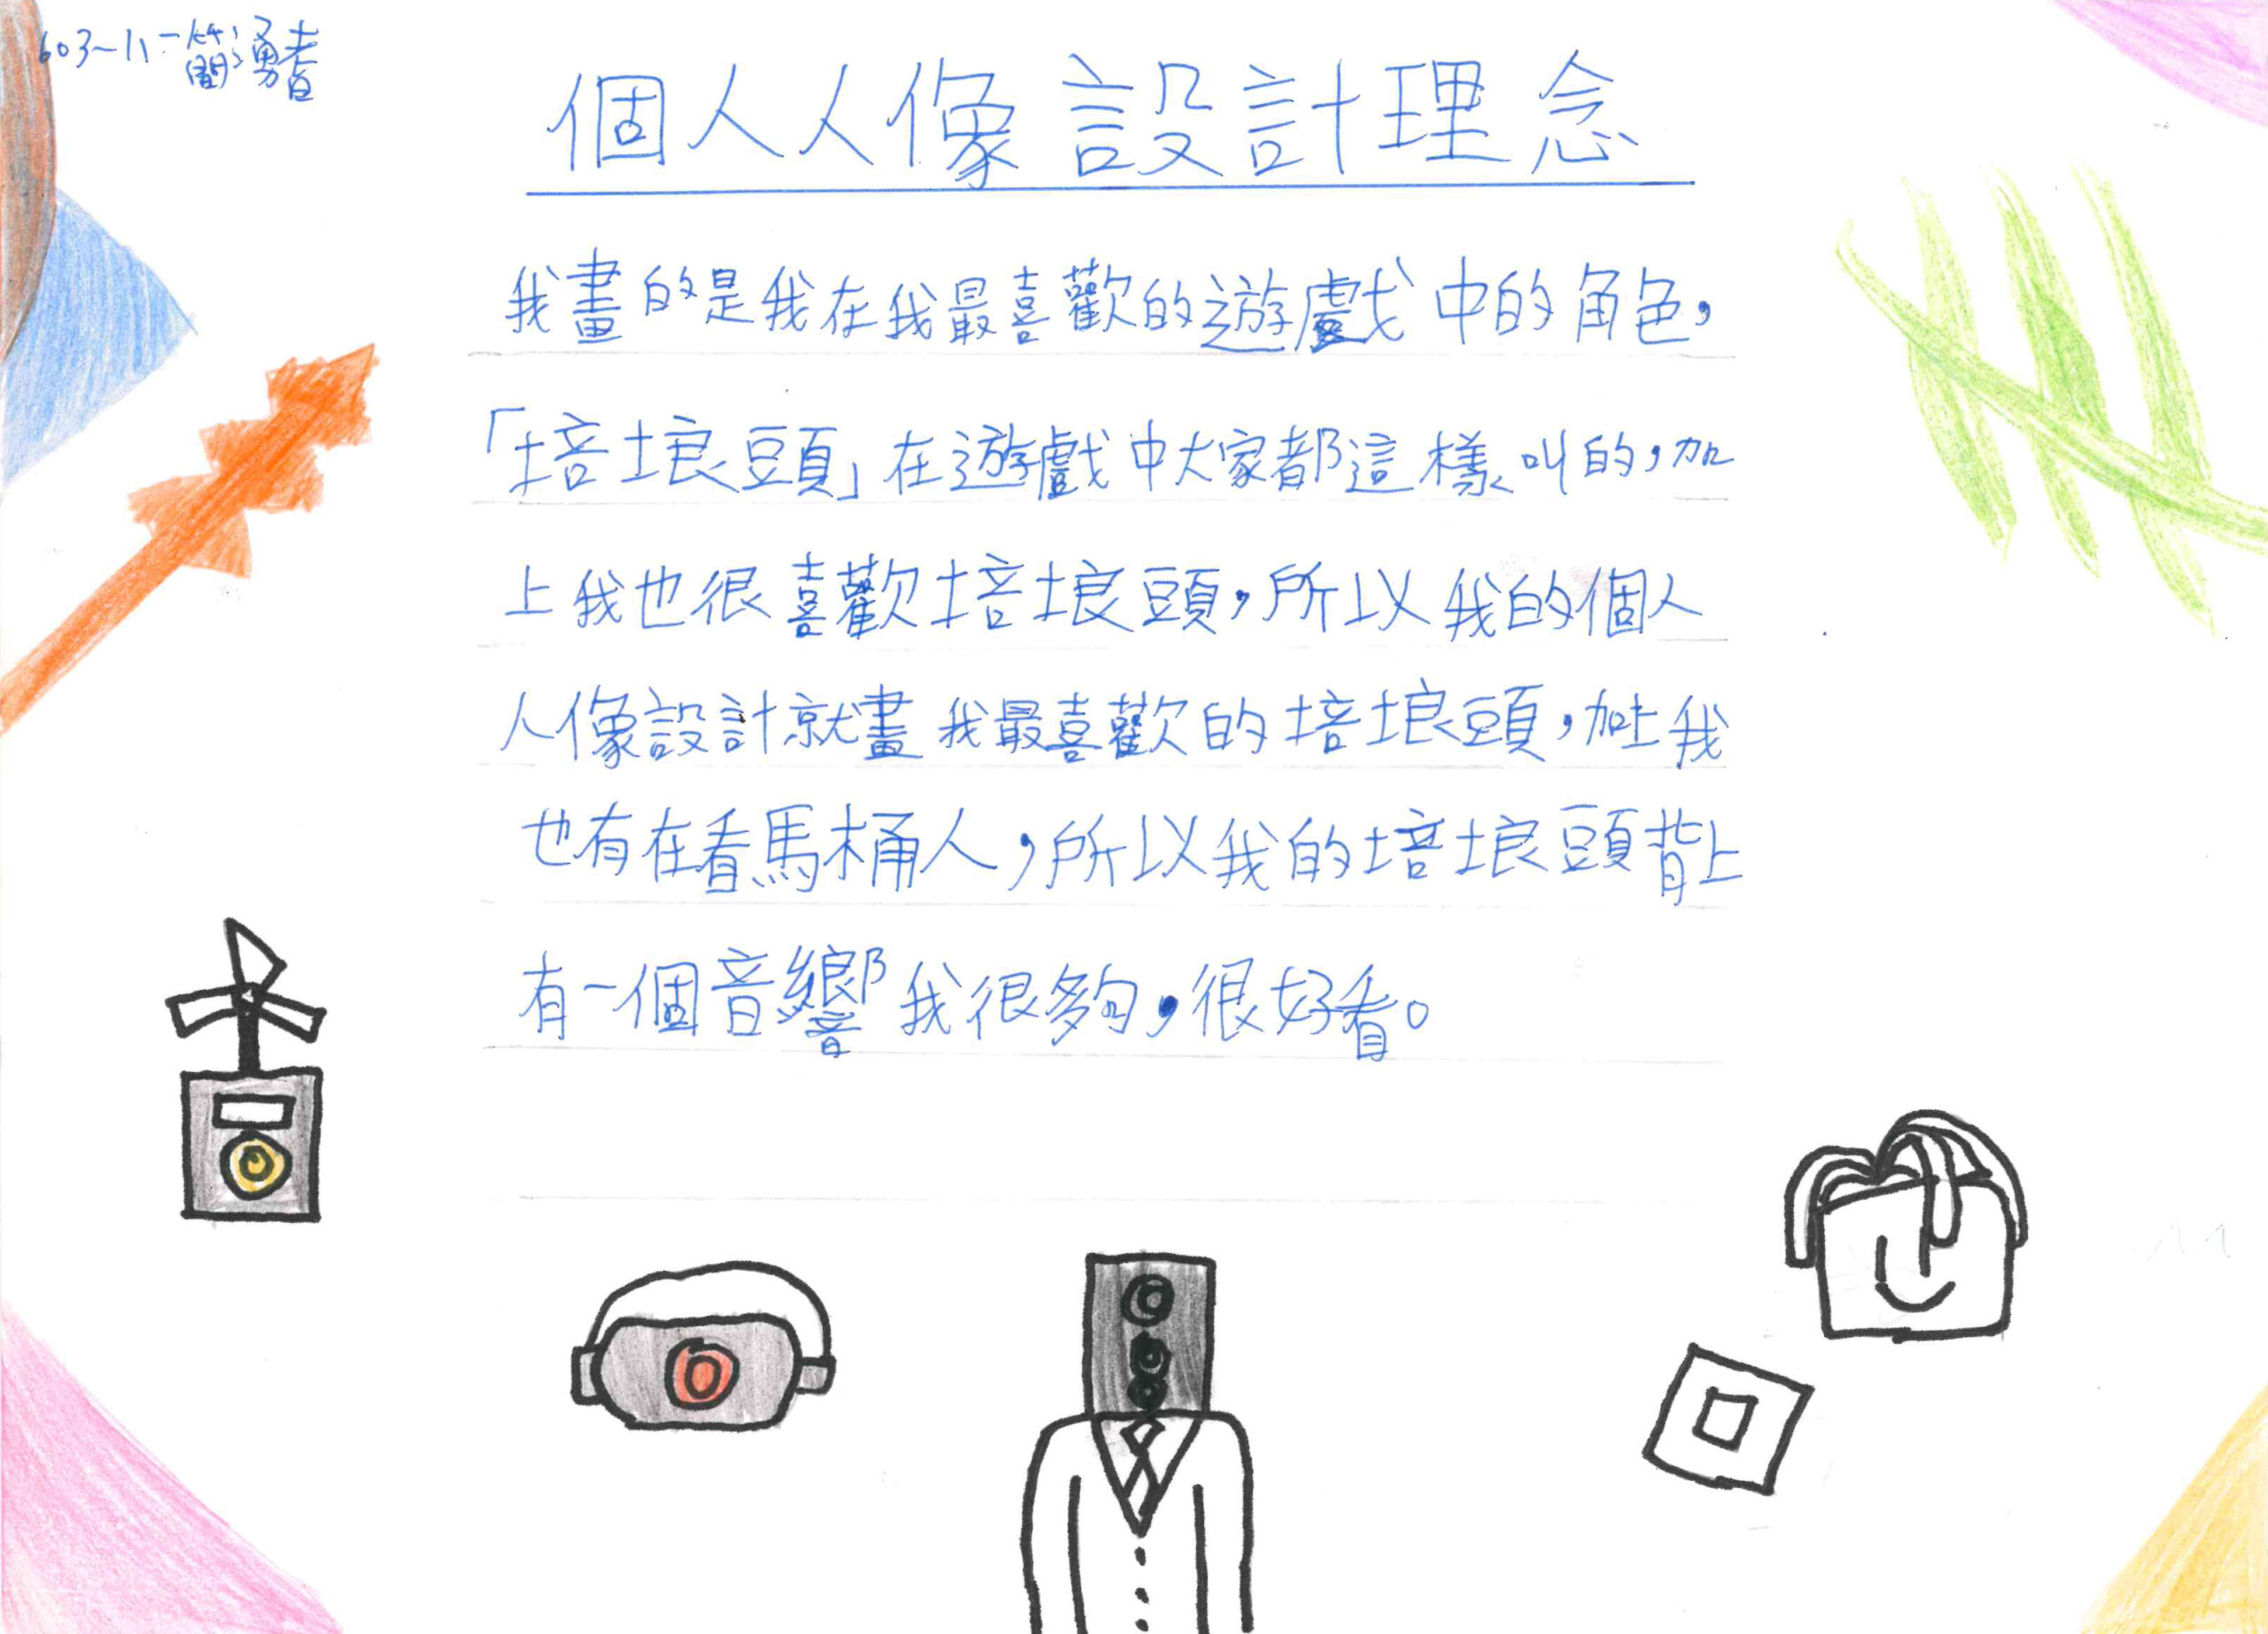 603~11-簡湧耆
個人人像設計理念
我畫的是我在我最喜歡的遊戲中的角色，
「培埌頭」在遊戲中大家都這樣叫的，加
上我也很喜歡培埌頭，所以我的個人
人像設計就畫我最喜歡的培埌頭，加上我
也有在看馬桶人，所以我的培埌頭背上
有一個音響我很多句，很好看。